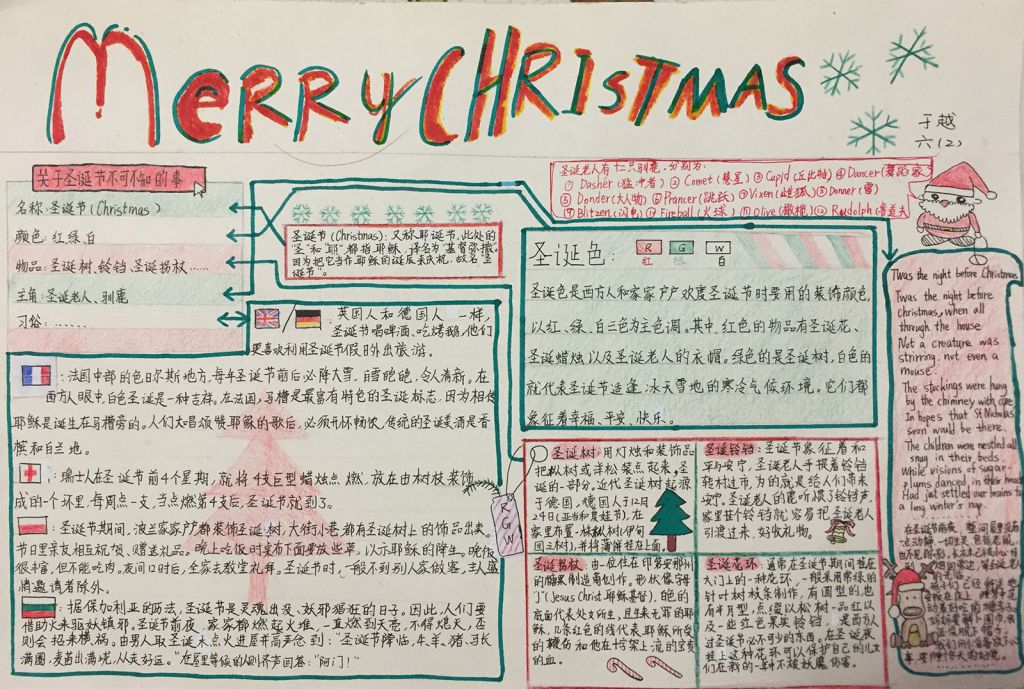 MERRY CHRISTMAS
于越
六(2)
关于圣诞节不可不知的事
名称:圣诞节(Christmas)
颜色:红.绿.白
物品:圣诞树、铃铛、圣诞拐杖......
主角:圣诞老人、驯鹿
习俗:......
圣诞老人有十二只驯鹿,分别为:
① Dasher(猛冲者) ② Comet(慧星) ③ Cupid(丘比特) ④ Dancer(舞蹈家)
⑤ Donder(大人物) ⑥ Prancer(跳跃) ⑦ Vixen(雌狐) ⑧ Donner(雷)
⑨ Blitzen(闪电) ⑩ Fireball(火球) ⑪ Olive(橄榄) ⑫ Rudolph
圣诞节(Christmas):又称耶诞节,此处的
"圣"和"耶"都指耶稣,译名为"基督弥撒"
因为把它当作耶稣的诞辰来庆祝,故名"圣
诞节"。
圣诞色: R G W
红 绿 白
圣诞色是西方人和家家户户欢度圣诞节时要用的装饰颜色,
以红、绿、白三色为主色调。其中,红色的物品有圣诞花、
圣诞蜡烛以及圣诞老人的衣帽。绿色的是圣诞树,白色的
就代表圣诞节适逢冰天雪地的寒冷气候环境。它们都
象征着幸福、平安、快乐。
:英国人和德国人一样,
圣诞节喝啤酒、吃烤鹅,他们
更喜欢利用圣诞节假日外出旅游。
:法国中部的色日尔斯地方,每年圣诞节前后必降大雪,白雪皑皑,令人清新。在
西方人眼中,白色圣诞是一种吉祥。在法国,马槽是最富有特色的圣诞标志,因为相传
耶稣是诞生在马槽旁的。人们大唱颂赞耶稣的歌后,必须开怀畅饮,传统的圣诞美酒是香
槟和白兰地。
:瑞士人在圣诞节前4个星期,就将4支巨型蜡烛点燃,放在由树枝装饰
成的一个环里,每周点一支,当点燃第4支后,圣诞节就到了。
:圣诞节期间,波兰家家户户都装饰圣诞树,大街小巷都有圣诞树上的饰品出卖。
节日里亲友相互祝贺、赠送礼品。晚上吃饭时桌布下面要放些草,以示耶稣的降生。晚饭
很丰富,但不能吃肉。夜间12时后,全家去教堂礼拜。圣诞节时,一般不到别人家做客,主人盛
情邀请者除外
:据保加利亚的历法,圣诞节是灵魂出没、妖邪猖狂的日子。因此,人们要
借助火来驱妖镇邪。圣诞节前夜,家家都燃起火堆,一直燃到天亮,不得熄灭,否
则会招来横祸。由男人取圣诞木点火进屋并高声念到:"圣诞节降临,牛、羊、猪、马长
满圈,麦苗出满垅,从走好运。"在屋里等候的人则齐声回答:"阿门!"
R G W
圣诞树:用灯烛和装饰品
把枞树或洋松装点起来。圣
诞的一部分,近代圣诞树起源
于德国,德国人于12月
24日(亚当和夏娃节),在
家里布置一株枞树(伊甸
园之树),并将薄饼挂在上面。
圣诞铃铛:圣诞节象征着和
平与安宁,圣诞老人手摸着铃铛
转村过市,为的就是给人们带来
安宁。圣诞老人的鹿听惯了铃铛声,
家里挂个铃铛就容易把圣诞老人
引渡过来,好收礼物。
圣诞拐杖:由一位住在印第安那州
的糖果制造商创作。形状像字母
"J"(Jesus Christ耶稣基督),白色的
底面代表处女所生,且生来无罪的耶
稣,几条红色的线代表,耶稣所受
的鞭伤和他在十字架上流的宝贵
的血。
圣诞花环:通常在圣诞节期间挂在
大门上的一种花环,一般采用常绿的
针叶树枝条制作,有圆型的,也
有半月型,点缀以松树一品红以
及一些红色果实铃铛,是西方人
过圣诞节必不可少的东西。在圣诞夜
挂上这种花环可以保护自己的儿女
们在新的一年中不被妖魔伤害。
Twas the night before Christmas
Twas the night before
Christmas, when all
through the house
Not a creature was
stirring, not even a
mouse.
The stockings were hung
by the chimney with care
In hopes that St Nicholas
soon would be there.
The children were nestled all
snug in their beds.
While visions of sugar-
plums danced in their heads
Had just settled our brains to
a long winter's nap.